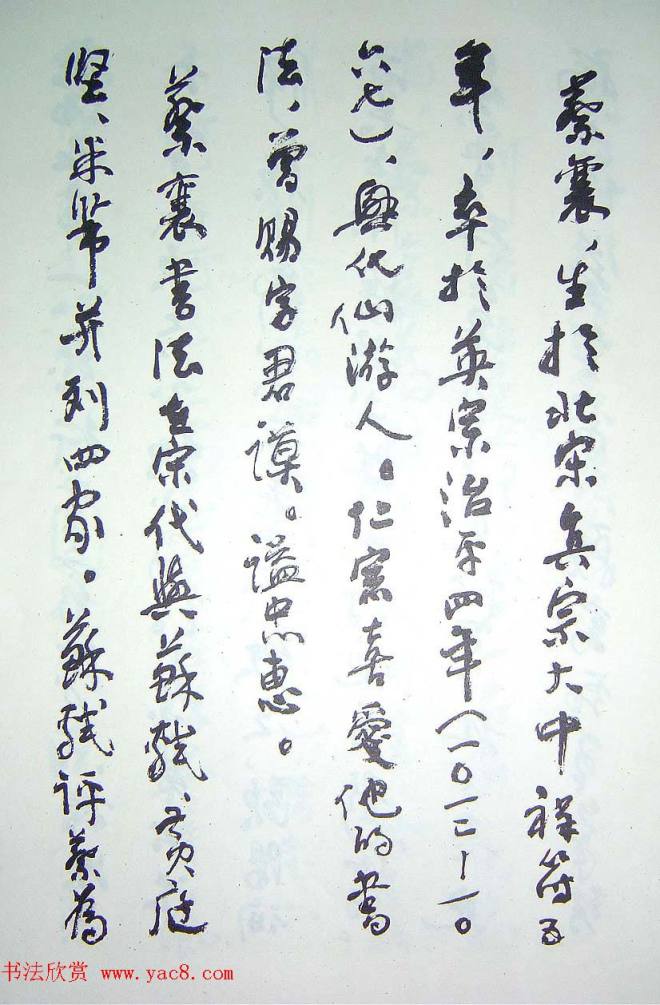 蔡襄，生於北宋真宗大中祥符五
年，卒於英宗治平四年（一〇一二－一〇
六七）、興化仙游人。仁宗喜愛他的書
法，曾賜字君謨。謚忠惠。
蔡襄書法在宋代與蘇軾、黃庭
堅、米芾并列四家。蘇軾評蔡為
书法欣赏 www.yac8.com